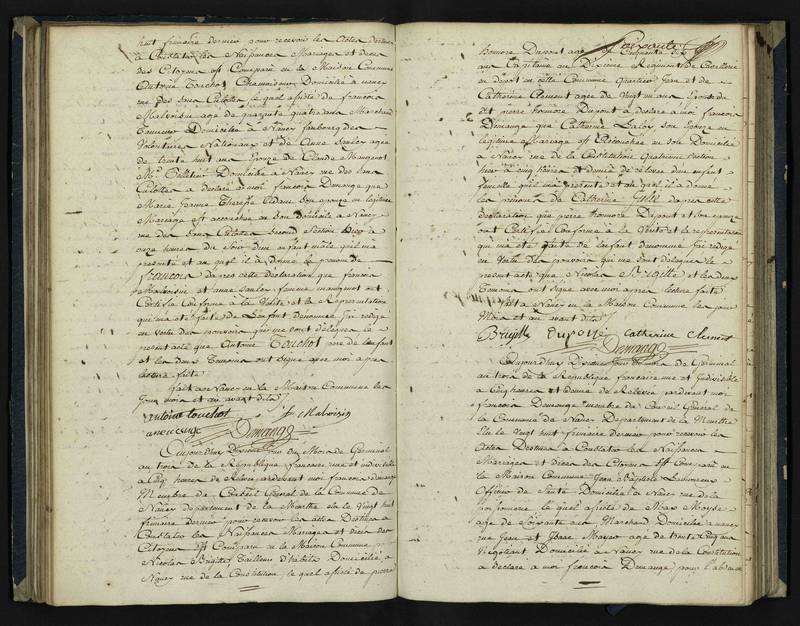 huit frimaire dernier pour recevoir les actes destinés
à Constater les Naissances Mariages et décès
des Citoyens est Comparu en la Maison Commune
Antoine Touchot Domicilié à nancy
rue des Sans Culottes, le quel assisté de françois
Malvoisin age de quarante quatre ans Marchand
Domicilié à Nancy faubourg des
Volontaires Nationaux et de Anne Sauloy agée
de trente huit ans Epouse de Claude Mangenot
Pelletier Domicilié à Nancy rue des Sans
Culottes a déclaré à moi françois Demange que
Marie Jeanne Therese son Epouse en legitime
Mariage est accouchée en son Domicile à Nancy
rue des Sans Culottes second Section à
onze heures du Soir d'un enfant male qu'il m'a
presenté et au quel il a Donné le prenom de
françois d'apres cette déclaration que françois
Malvoisin et anne Sauloy femme mangenot ont
Certifié Conforme à la Verité et la Representation
qui m'a été faite de L'enfant denommé j'ai redigé
en vertu des pouvoirs qui me sont délégués le
present acte que Antoine Touchot pere de l'enfant
et les deux Temoins ont signé avec moi apres
lecture faite
fait à Nancy en la Maison Commune les
jour mois et an avant dits
antoine touchot f Malvoisin
Demange
Aujourdhuy Dixieme jour du Mois de Germinal
au trois de la République francoise une et indivisible
à Cinq heures de Relevé pardevant moi françois demange
Membre du Conseil General de la Commune de
Nancy departement de la Meurthe élu le Vingt huit
frimaire dernier pour recevoir les actes Destinés à
Constater les Naissances Mariages et décès des
Citoyens est Comparu en la Maison Commune
Nicolas Brigitte Tailleur d'habits Domicilié à
Nancy rue de la Constitution, le quel assisté de pierre
honoré Dupont age de Cinquante six
ans Capitaine au Dixieme Regiment de Cavallerie
en depot en cette Commune quartier Jean et de
Catherine Clement agée de Vingt un ans Epouse du
dit pierre honnoré Dupont a déclaré à moi françois
Demange que Catherine Laloy son Epouse en
legitime Mariage est accouchée en son Domicile
à Nancy rue de la Constitution quatrieme section
hier à cinq heures et demie de relevée d'un enfant
femelle qu'il m'a presenté et au quel il a donné
les prenoms de Catherine Julie d'apres cette
declaration que pierre honnoré Dupont et son epouse
ont Certifié Conforme à la Verité et la representation
qui m'a été faite de l'enfant denommé j'ai redigé
en Vertu des pouvoirs qui me sont délégués le
present acte que Nicolas Brigitte et les deux
Temoins ont signé avec moi apres lecture faite
fait à Nancy en la Maison Commune les jour
Mois et an avant dits
Brigitte Dupont Catherine Clement
Demange
Aujourdhuy Dixieme jour du mois de Germinal
au trois de la République francaise une et indivisible
à Cinq heures et demie de Relevée pardevant moi
françois Demange membre du Conseil General de
la Commune de Nancy Departement de la Meurthe
Elu le Vingt huit frimaire dernier pour recevoir les
actes Destinés à Constater les Naissances
Mariages et décès des Citoyens est Comparu en
la Maison Commune Jean Baptiste
Officier de Santé Domicilié à Nancy rue de la
Poissonnerie le quel assisté de
age de soixante ans Marchand Domicilié à nancy
rue Jean et age de trente Cinq ans
Négotiant Domicilié à Nancy rue de la Constitution
a déclaré à moi françois Demange pour l'absence